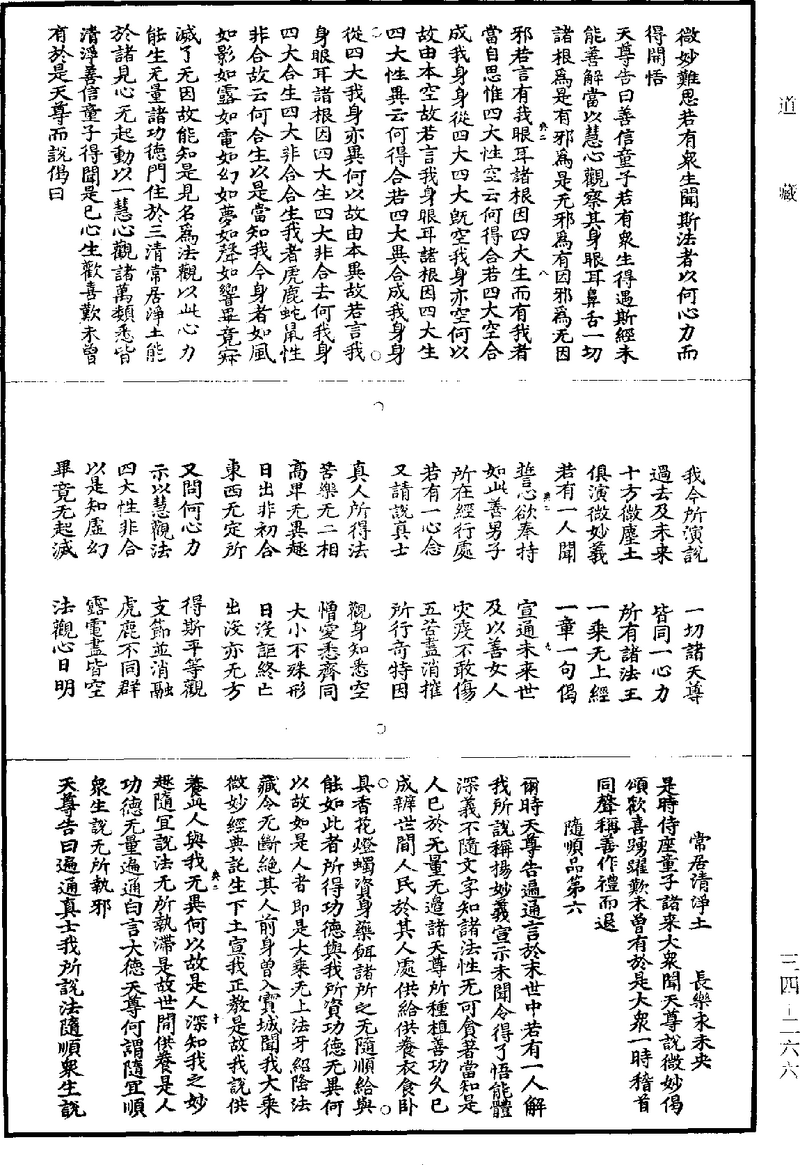 道藏
微妙難思若有衆生聞斯法者以何心力而
得開悟
天尊告曰善信童子若有衆生得遇斯經未
能善解當以慧心觀察其身眼耳鼻舌一切
諸根爲是有邪爲是无邪爲有因邪爲无因
邪若言有我眼耳諸根因四大生而有我者
當自思惟四大性空云何得合若四大空合
成我身身從四大四大旣空我身亦空何以
故由本空故若言我身眼耳諸根因四大生
四大性異云何得合若四大異合成我身身
從四大我身亦異何以故由本異故若言我
身眼耳諸根因四大生四大非合去何我身
四大合生四大非合合生我者虎鹿蛇鼠性
非合故云何合生以是當知我今身者如風
如影如露如電如幻如夢如聲如響畢竟寂
滅了无因故能知是見名爲法觀以此心力
能生无量諸功德門住於三清常居淨土能
於諸見心无起動以一慧心觀諸萬類悉皆
清淨善信童子得聞是已心生歡喜歎未曾
有於是天尊而說偈曰
我今所演說 一切諸天尊
過去及未來 皆同一心力
十方微塵土 所有諸法王
俱演微妙義 一乘无上經
若有一人聞 一章一句偈
誓心欲奉持 宣通未來世
如此善男子 及以善女人
所在經行處 灾疫不敢傷
若有一心念 五苦盡消摧
又請説真士 所行奇特因
真人所得法 觀身知悉空
苦樂无二相 憎愛悉齊同
高卑无異趣 大小不殊形
日出非初合 日没詎終亡
東西无定所 出没亦无方
又問何心力 得斯平等觀
示以慧觀法 支節並消融
四大性非合 虎鹿不同群
以是知虛幻 露電盡皆空
畢竟无起滅 法觀心日明
常居清淨土 長樂永未央
是時侍座童子諸來大衆聞天尊說微妙偈
頌歡喜踴躍歎未曾有於是大衆一時稽首
同聲稱善作禮而退
隨順品第六
爾時天尊告遍通言於末世中若有一人解
我所說稱揚妙義宣示未聞令得了悟能體
深義不隨文字知諸法性无可貪著當知是
人已於无量无邊諸天尊所種植善功久已
成辦世間人民於其人處供給供養衣食卧
具香花燈蠋資身藥餌諸所之无隨順給與
能如此者所得功德與我所資功德无異何
以故如是人者即是大乘无上法牙紹隆法
藏令无斷絕其人前身曾入寶城聞我大乘
微妙經典託生下土宣我正教是故我說供
養此人與我无異何以故是人深知我之妙
趣隨宜說法无所執滯是故世間供養是人
功德无量遍通白言大德天尊何謂隨宜順
衆生說无所執邪
天尊告曰遍通真士我所說法隨順衆生說
三四－二六六